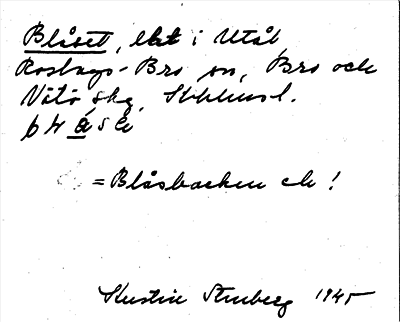 Blåset, lht i Utål,
Roslags-Bro sn, Bro och
Vätö skg, Sthlmsl.
= Blåsbacken ek!
Kerstin Struberg 1945